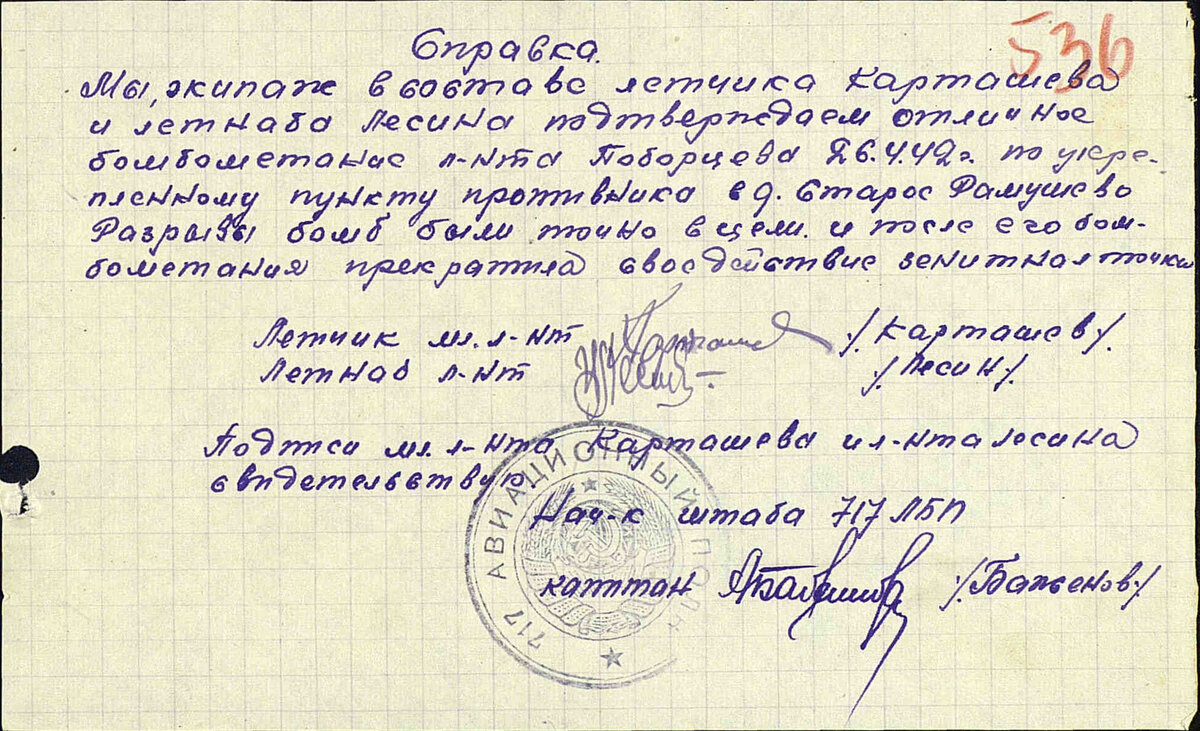 536
Справка.
Мы, экипаж в составе летчика Карташева
и летнаба Лесина подтверждаем отличное
бомбометание л-нта Поборцева 26.4.42г. по укре-
пленному пункту противника в д. Старое Рамушево
Разрывы бомб были точно в цели. и после его бом-
бометания прекратила свое действие зенитная точка
Летчик мл. л-нт /Карташев/.
Летнаб л-нт /Лесин/.
Подписи мл. л-нта Карташева и л-нта Лесина
свидетельствую
Нач-к штаба 717 ЛБП
капитан /Баженов/
717 АВИАЦИОННЫЙ ПОЛК